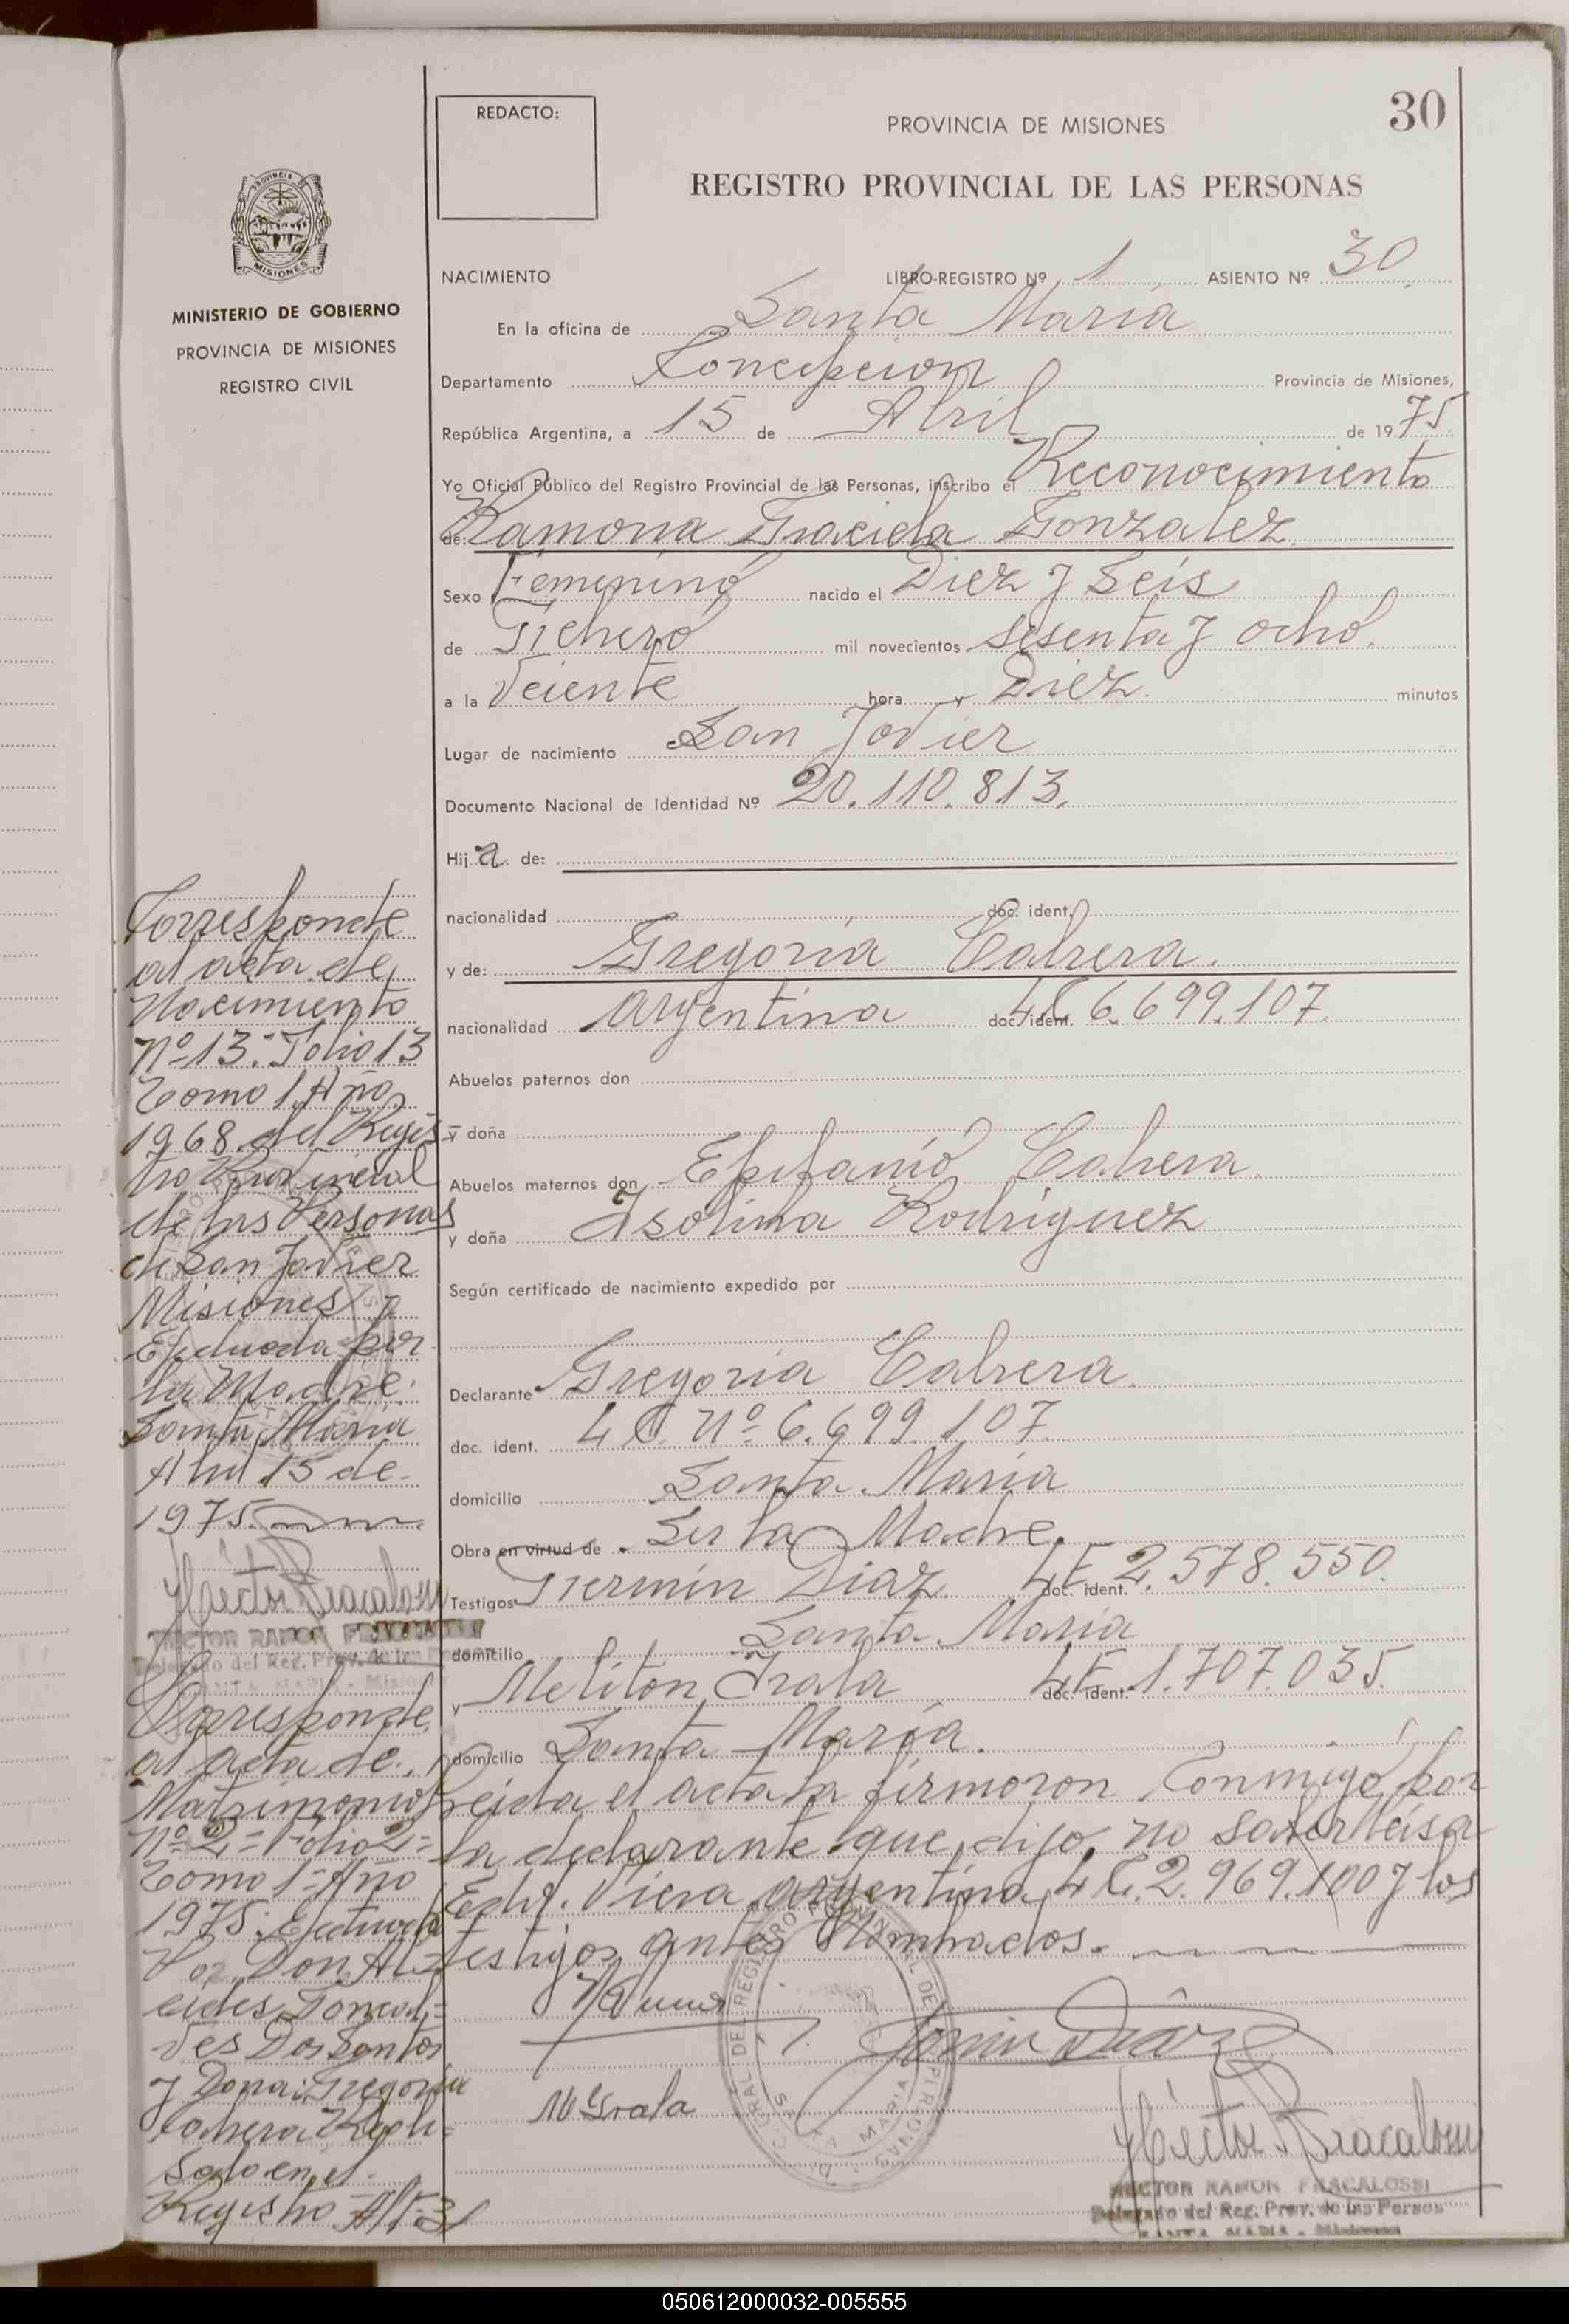 30
REDACTO:
PROVINCIA DE MISIONES
REGISTRO PROVINCIAL DE LAS PERSONAS
PROVINCIA
MISIONES
MINISTERIO DE GOBIERNO
PROVINCIA DE MISIONES
REGISTRO CIVIL
NACIMIENTO LIBRO-REGISTRO Nº 1 ASIENTO Nº 30
En la oficina de Santa María
Departamento Concepcion Provincia de Misiones,
República Argentina, a 15 de Abril de 1975
Yo Oficial Público del Registro Provincial de las Personas, inscribo el Reconocimiento
de: Ramona Graciela Gonzalez
Sexo Femenino nacido el Diez y Seis
de Enero mil novecientos sesenta y ocho.
a la Veiente hora y Diez minutos
Lugar de nacimiento San Javier
Documento Nacional de Identidad Nº 20.110.813.
Hija de:
nacionalidad doc. ident.
y de: Gregoria Cabrera.
nacionalidad argentina doc. ident. LC 6.699.107.
Abuelos paternos don
y doña
Abuelos maternos don Epifanio Cabrera
y doña Isolina Rodriguez
Según certificado de nacimiento expedido por
Declarante Gregoria Cabrera.
doc. ident. LC. Nº 6.699.107.
domicilio Santa María
Obra en virtud de Ser la Madre.
Testigos Fermín Diaz doc. ident. LE 2.578.550.
domicilio Santa María
y Meliton Irala doc. ident. LE 1.707.035.
domicilio Santa María.
Leida el acta la firmaron Conmigo por
la declarante que dijo no saber
Viera argentina LC. 2.969.100 y los
testigos antes Nombrados.
Corresponde
al acta de
Nacimiento
Nº 13. Folio 13
Tomo 1 Año
1968 del Regis
tro Provincial
de las Personas
de San Javier
Misiones
Efectuada por
la Madre.
Santa María
Abril 15 de
1975
Hector Fracalossi
HECTOR RAMON FRACALOSSI
Delegado del Reg. Prov. de las Personas
SANTA MARIA - Misiones
Corresponde
al acta de
Matrimonio
Nº 2 = Folio 2 =
Tomo 1 = Año
1975. Efectuada
Por Don Al
cides Goncal=
ves Dos Santos
y Dona: Gregoria
Cabrera Reali=
sado en el
Registro
M Irala
Fermin Diaz
Hector R Fracalossi
HECTOR RAMON FRACALOSSI
Delegado del Reg. Prov. de las Person
SANTA MARIA - Misiones
050612000032-005555